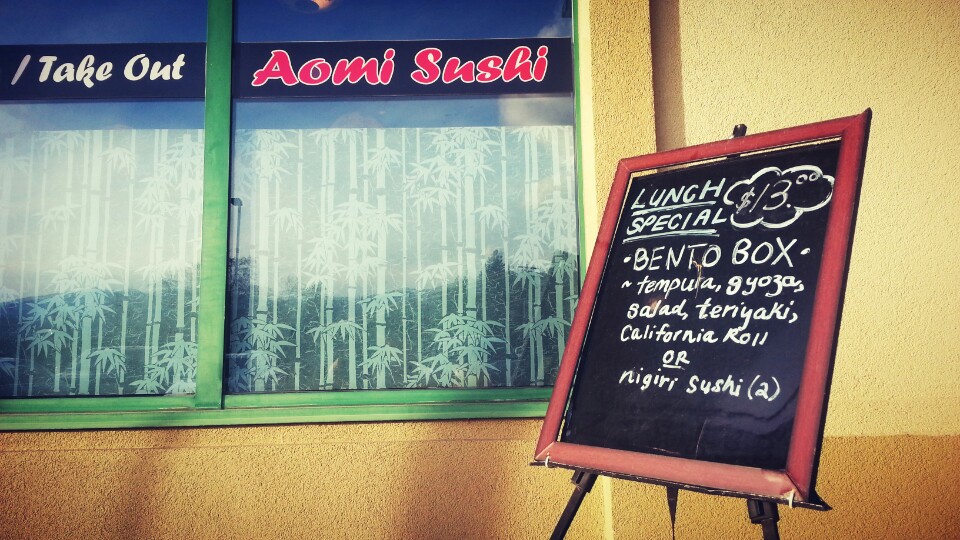 / Take Out
Aomi Sushi
LUNCH
SPECIAL
$13.00
• BENTO BOX •
~ tempura, gyoza,
salad, teriyaki,
California Roll
OR
nigiri sushi (2)